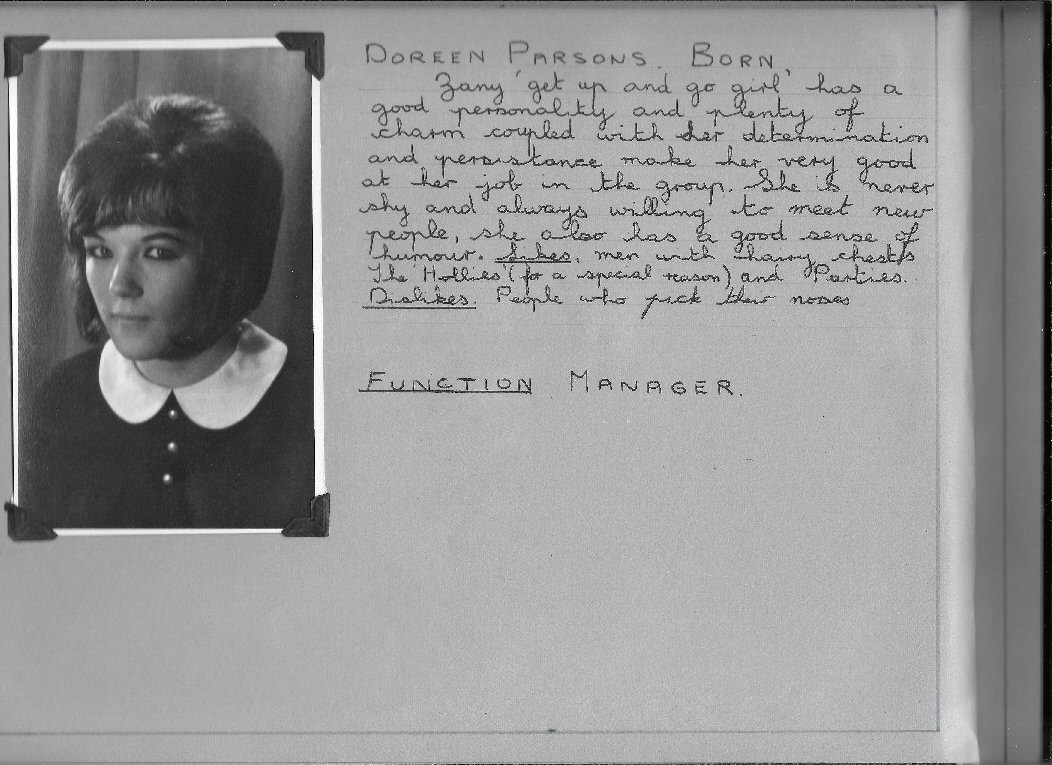 DOREEN PARSONS. BORN,
Zany 'get up and go girl' has a
good personality and plenty of
charm coupled with her determination
and persistance make her very good
at her job in the group. She is never
shy and always willing to meet new
people, she also has a good sense of
humour. Likes, men with hairy chests
The 'Hollies' (for a special reason) and Parties.
Dislikes. People who pick their noses
FUNCTION MANAGER.